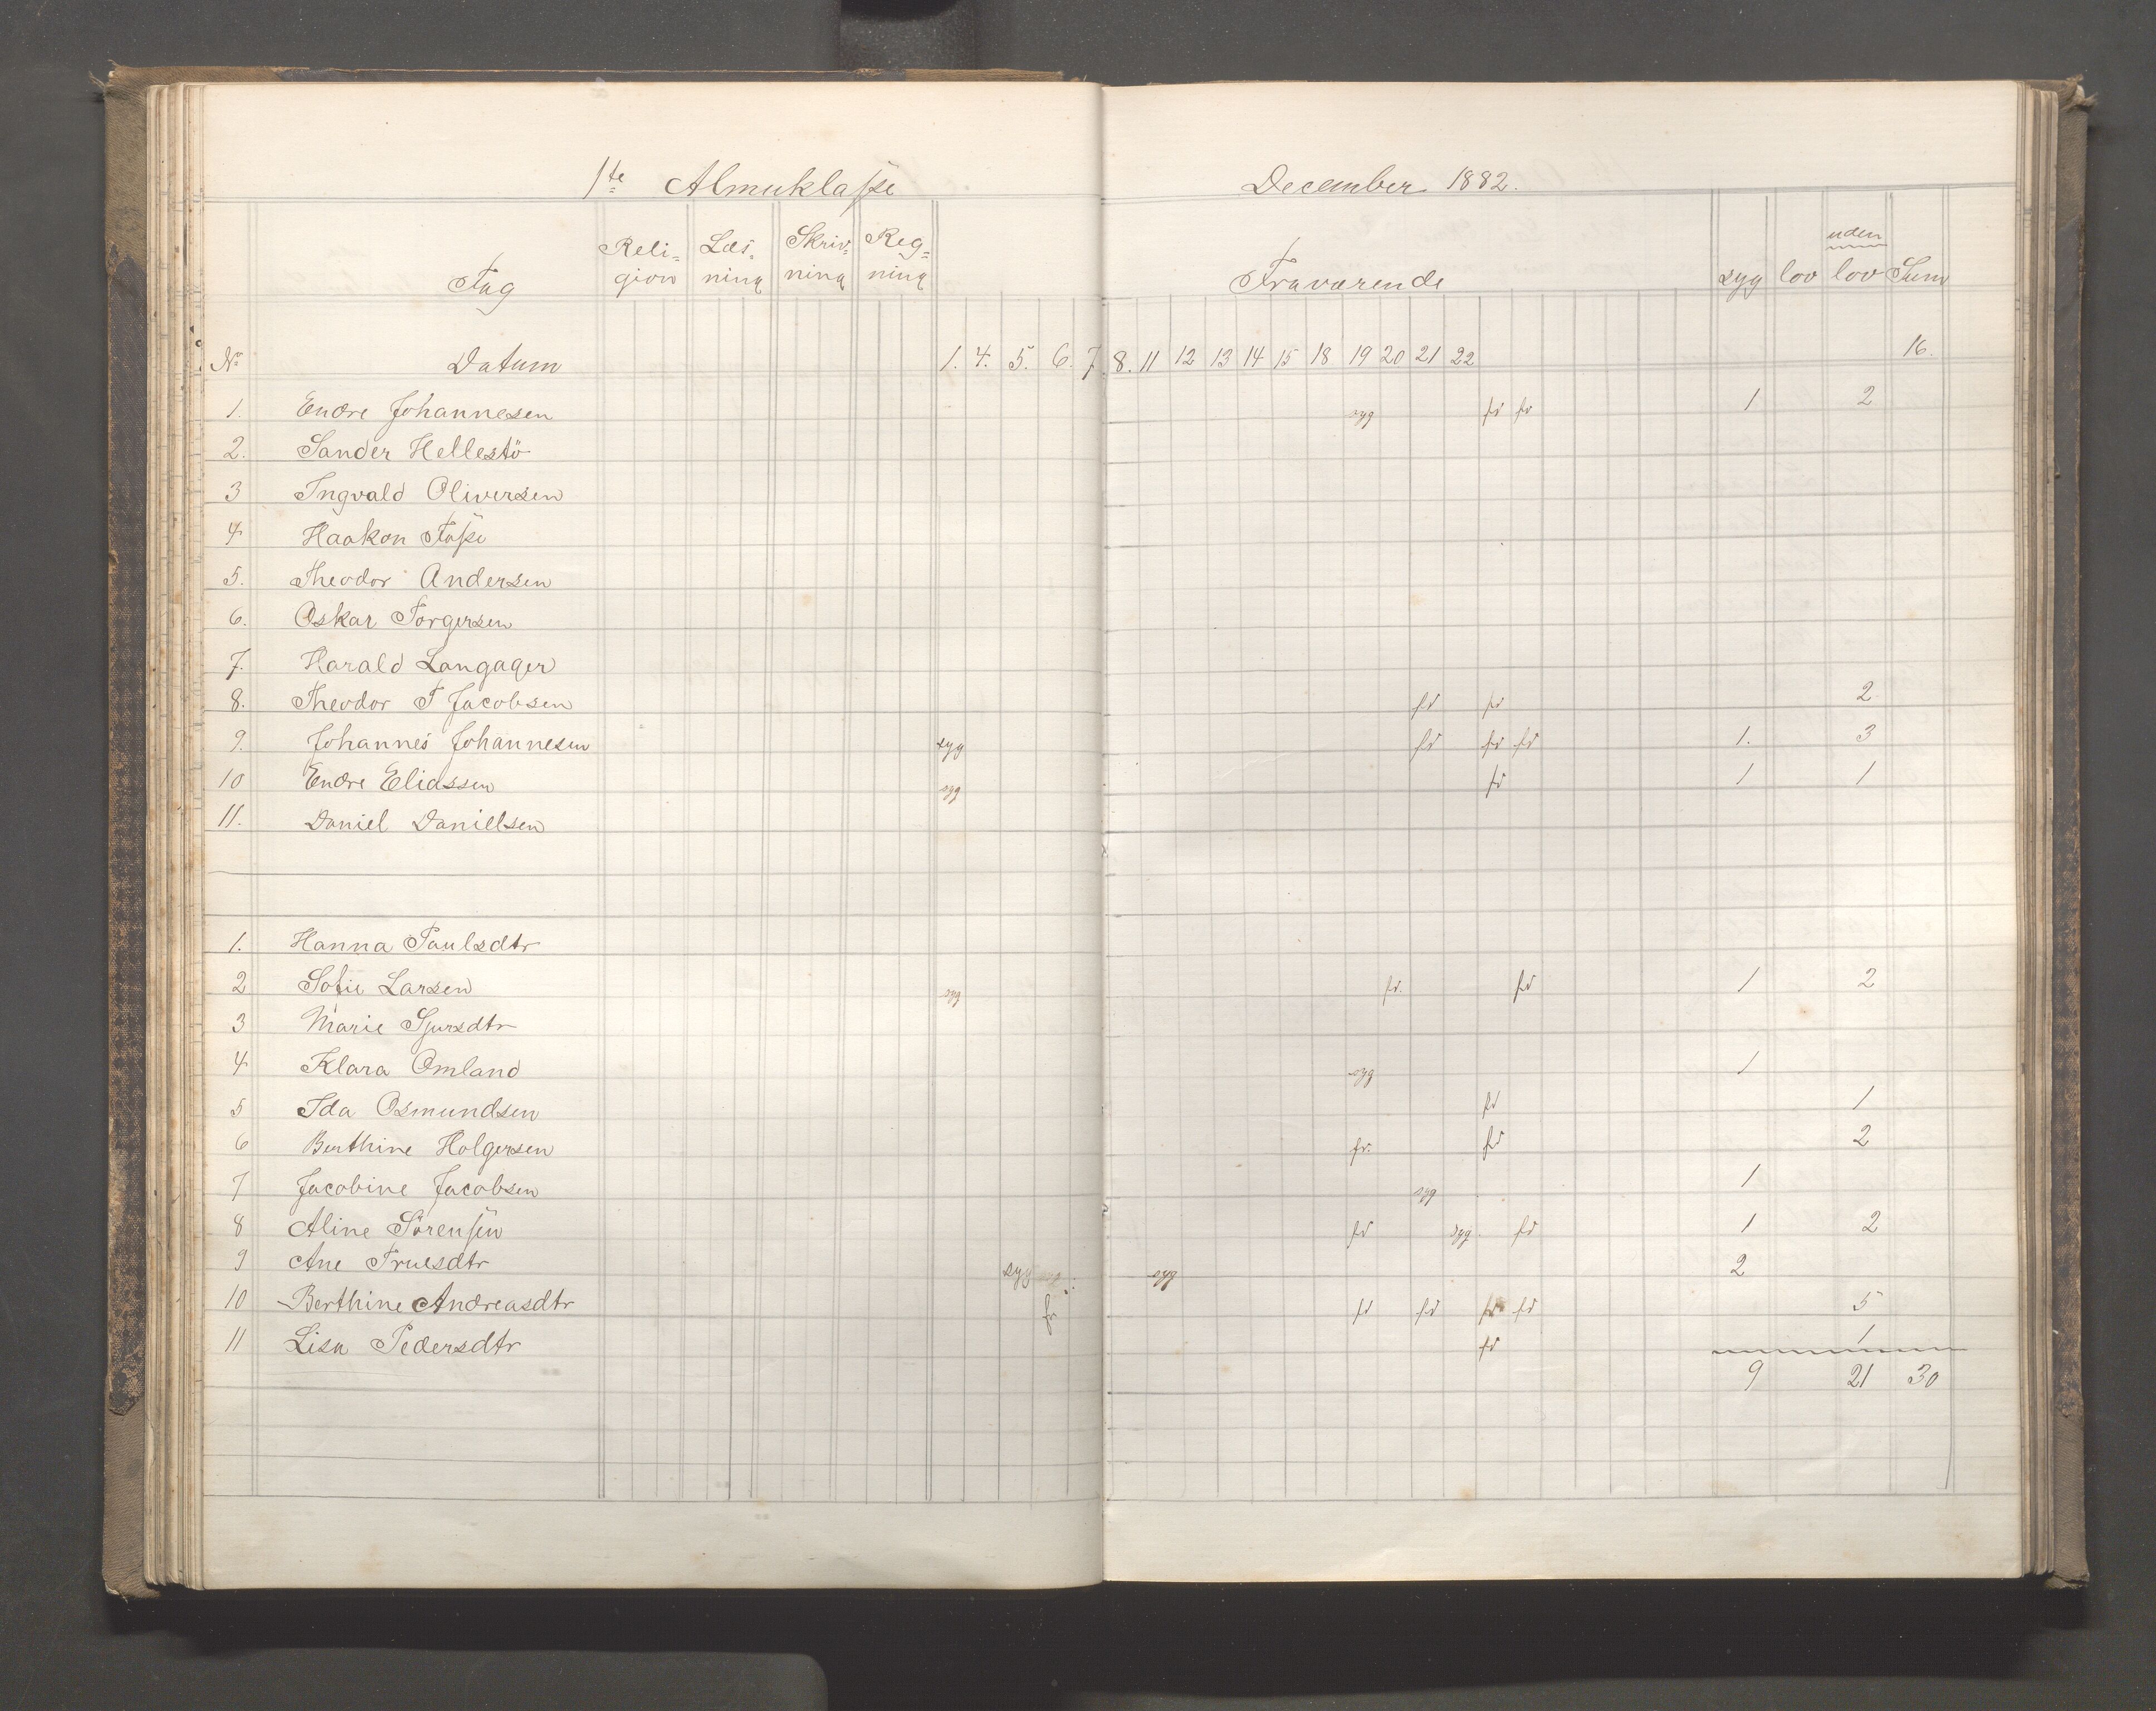 1ste Almuklasse December 1882.
Fag Reli= gion Læs= ning Skriv= ning Reg= ning Fraværende syg lov uden lov Sum
No Datum 1. 4. 5. 6. 7. 8. 11 12 13 14 15 18 19 20 21 22 16.
1. Endre Johannesen syg fr fr 1 2
2. Sander Hellestö
3 Ingvald Oliversen
4 Haakon Tasse
5. Theodor Andersen
6. Oskar Torgersen
7. Harald Langager
8. Theodor T Jacobsen fr fr 2
9. Johannes Johannesen syg fr fr fr 1. 3
10 Endre Eliassen syg fr 1 1
11. Daniel Danielsen
1. Hanna Paulsdtr
2 Sofie Larsen syg fr. fr 1 2
3 Marie Sjursdtr
4 Klara Omland syg 1
5 Ida Osmundsen fr 1
6 Berthine Holgersen fr. fr 2
7 Jacobine Jacobsen syg 1
8 Aline Sörensen fr syg fr 1 2
9 Ane Truesdtr syg syg 2
10 Berthine Andreasdtr fr fr fr fr fr 5
11 Lisa Pedersdtr fr 1
9 21 30